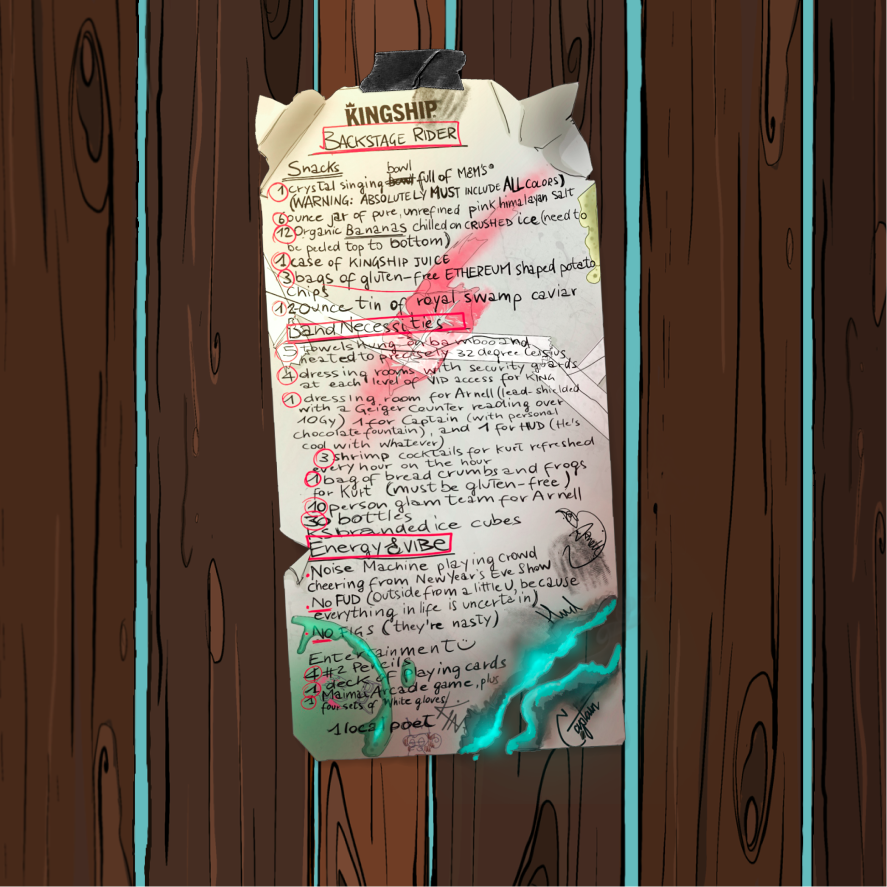 KINGSHIP
BACKSTAGE RIDER
Snacks
bowl
1 crystal singing bowl full of M&M's
(WARNING: ABSOLUTELY MUST INCLUDE ALL COLORS)
6 ounce jar of pure, unrefined pink himalayan salt
12 Organic Bananas chilled on CRUSHED ice (need to
be peeled top to bottom)
1 case of KINGSHIP JUICE
3 bags of gluten-free ETHEREUM shaped potato
Chips
1 20unce tin of royal swamp caviar
Band Necessities
5 towels hung on bamboo and
heated to precisely 32 degree Celsius
4 dressing rooms with security guards
at each level of VIP access for KING
1 dressing room for Arnell (lead-shielded
with a Geiger Counter reading over
10Gy) 1 for Captain (with personal
chocolate fountain), and 1 for HUD (He's
cool with whatever)
3 shrimp cocktails for Kurt refreshed
every hour on the hour
1 bag of bread crumbs and frogs
for Kurt (must be gluten-free)
10 person glam team for Arnell
30 bottles
KS branded ice cubes
Energy & VIBE
Arnell
• Noise Machine playing crowd
cheering from New Year's Eve Show
• No FUD (Outside from a little U, because
everything in life is uncertain)
• No FIGS (they're nasty)
Hud
Entertainment
4 #2 Pencils
1 deck of playing cards
1 Maimai Arcade game, plus
four sets of White gloves
1 local poet
Captain